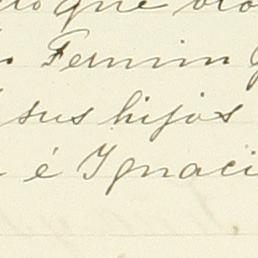 que
Fermin
sus hijos
é Ignaci